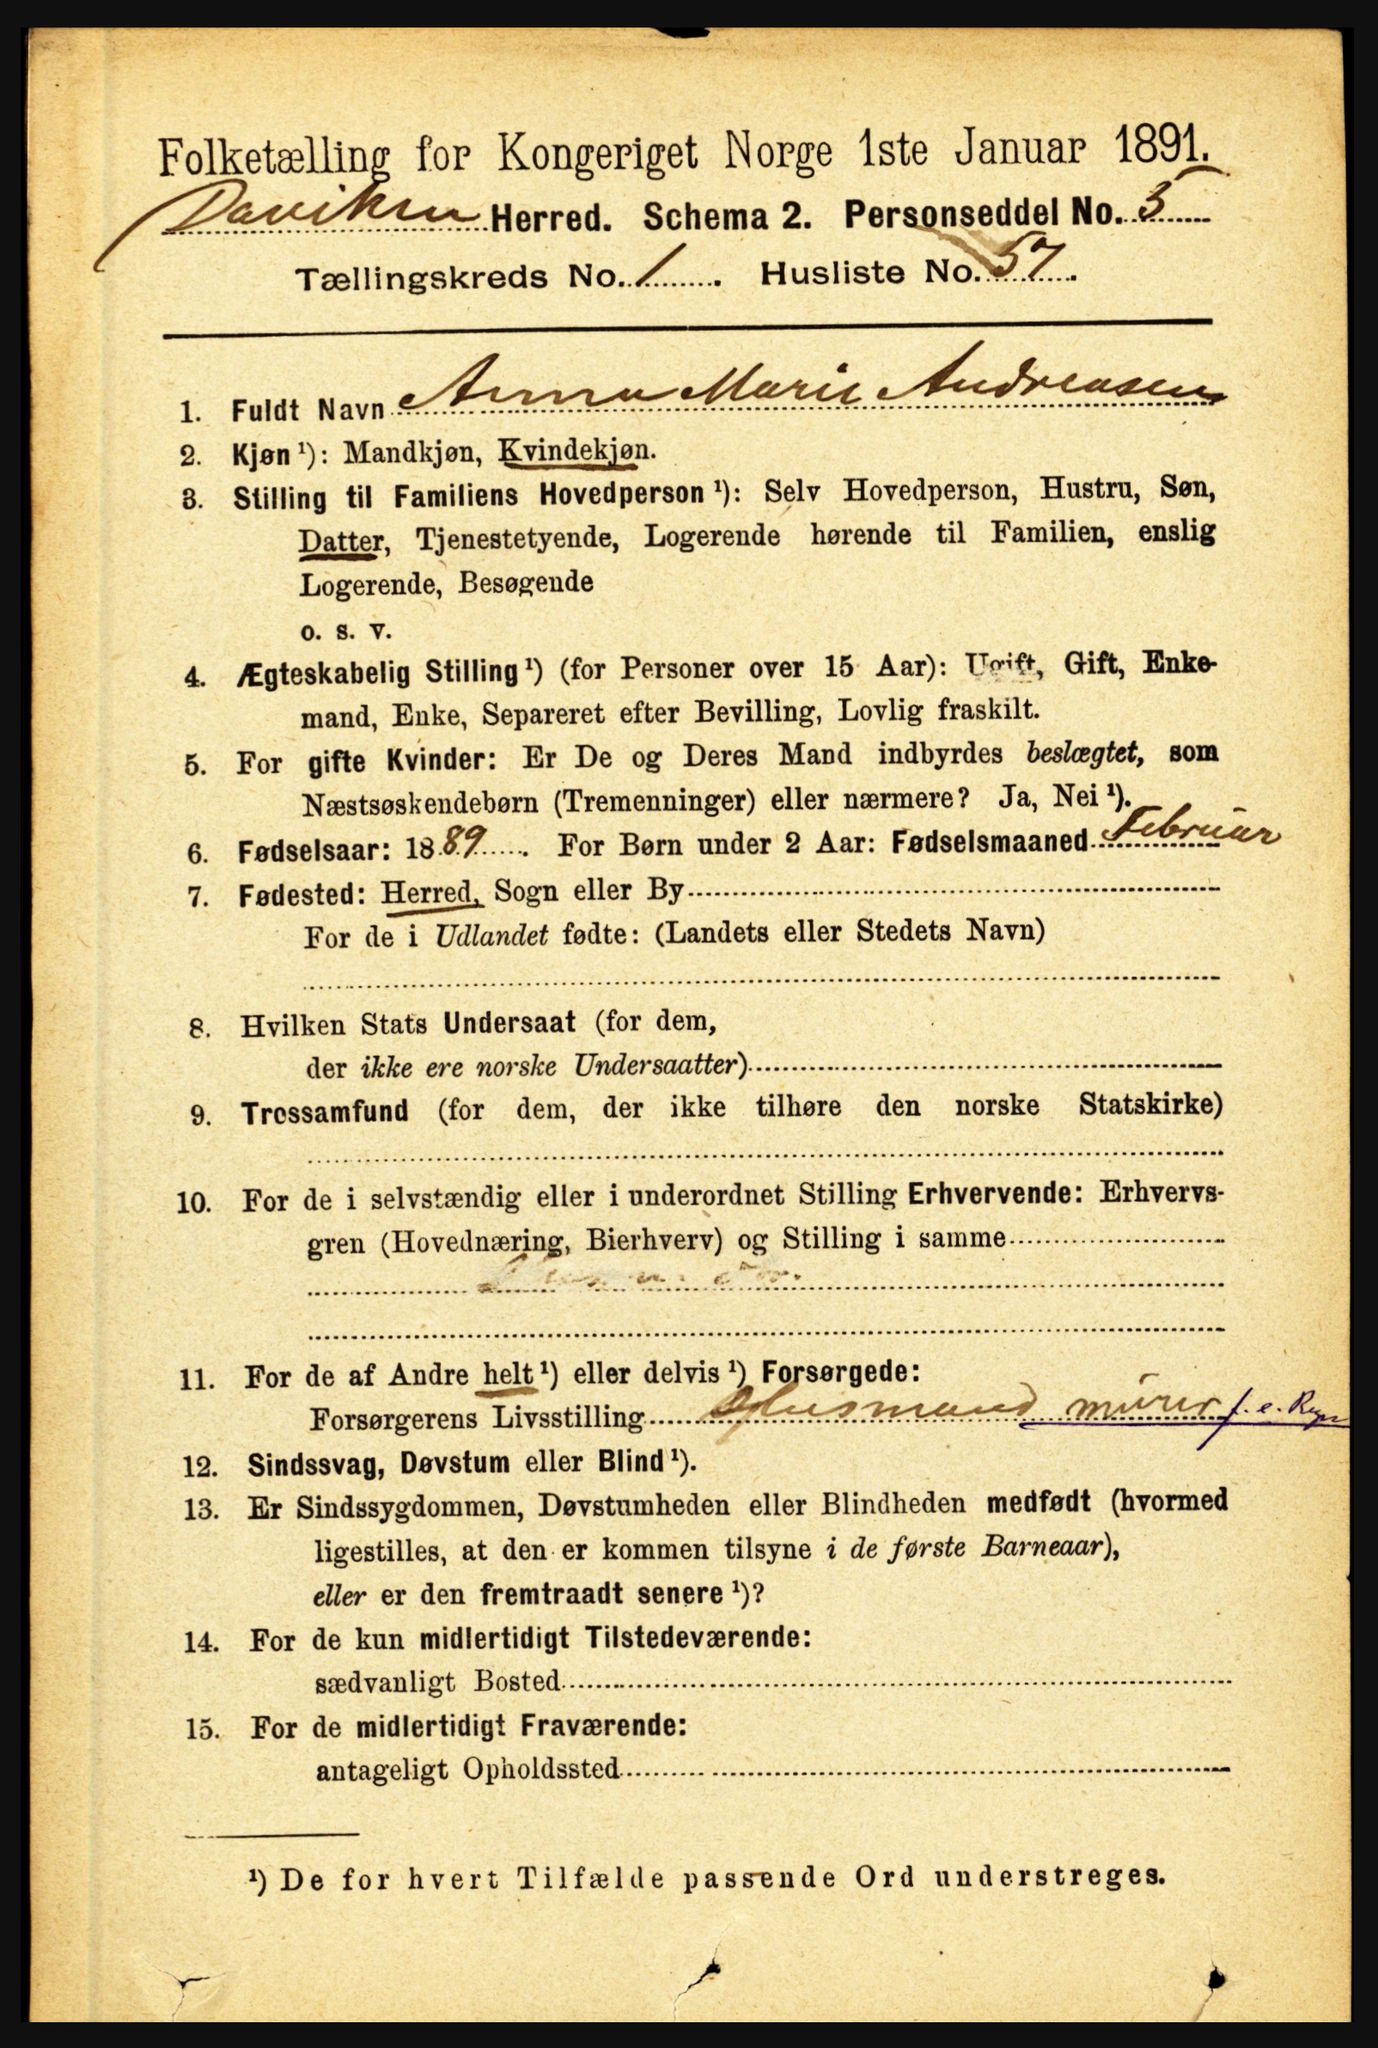 Folketælling for Kongeriget Norge 1ste Januar 1891.
Daviken Herred. Schema 2. Personseddel No. 5
Tællingskreds No. 1. Husliste No. 57.
1. Fuldt Navn Anna Marie Andreasen
2. Kjøn ¹): Mandkjøn, Kvindekjøn.
3. Stilling til Familiens Hovedperson ¹): Selv Hovedperson, Hustru, Søn,
Datter, Tjenestetyende, Logerende hørende til Familien, enslig
Logerende, Besøgende
o. s. v.
4. Ægteskabelig Stilling ¹) (for Personer over 15 Aar): Ugift, Gift, Enke-
mand, Enke, Separeret efter Bevilling, Lovlig fraskilt.
5. For gifte Kvinder: Er De og Deres Mand indbyrdes beslægtet, som
Næstsøskendebørn (Tremenninger) eller nærmere? Ja, Nei ¹).
6. Fødselsaar: 1889. For Børn under 2 Aar: Fødselsmaaned Februar
7. Fødested: Herred, Sogn eller By
For de i Udlandet fødte: (Landets eller Stedets Navn)
8. Hvilken Stats Undersaat (for dem,
der ikke ere norske Undersaatter)
9. Trossamfund (for dem, der ikke tilhøre den norske Statskirke)
10. For de i selvstændig eller i underordnet Stilling Erhvervende: Erhvervs-
gren (Hovednæring, Bierhverv) og Stilling i samme
11. For de af Andre helt ¹) eller delvis ¹) Forsørgede:
Forsørgerens Livsstilling Husmand murer f. e. Regn
12. Sindssvag, Døvstum eller Blind ¹).
13. Er Sindssygdommen, Døvstumheden eller Blindheden medfødt (hvormed
ligestilles, at den er kommen tilsyne i de første Barneaar),
eller er den fremtraadt senere ¹)?
14. For de kun midlertidigt Tilstedeværende:
sædvanligt Bosted
15. For de midlertidigt Fraværende:
antageligt Opholdssted
¹) De for hvert Tilfælde passende Ord understreges.